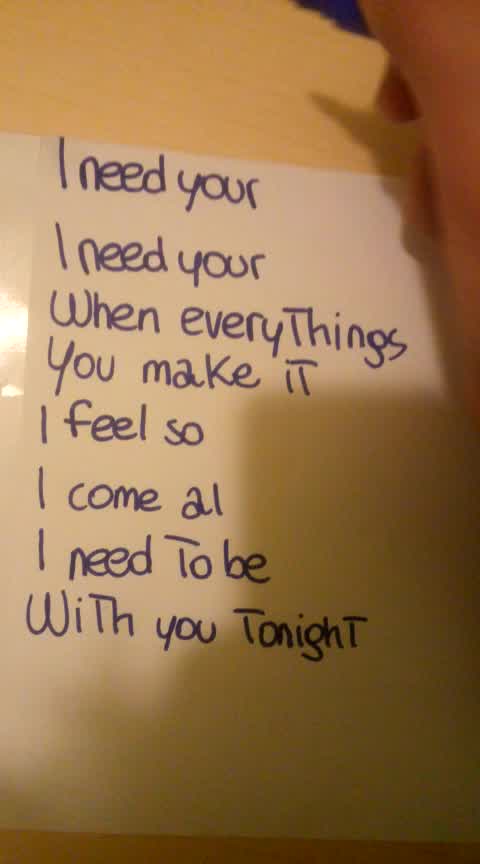 I need your
I need your
When everyThings
You make iT
I feel so
I come al
I need To be
WiTh you TonighT